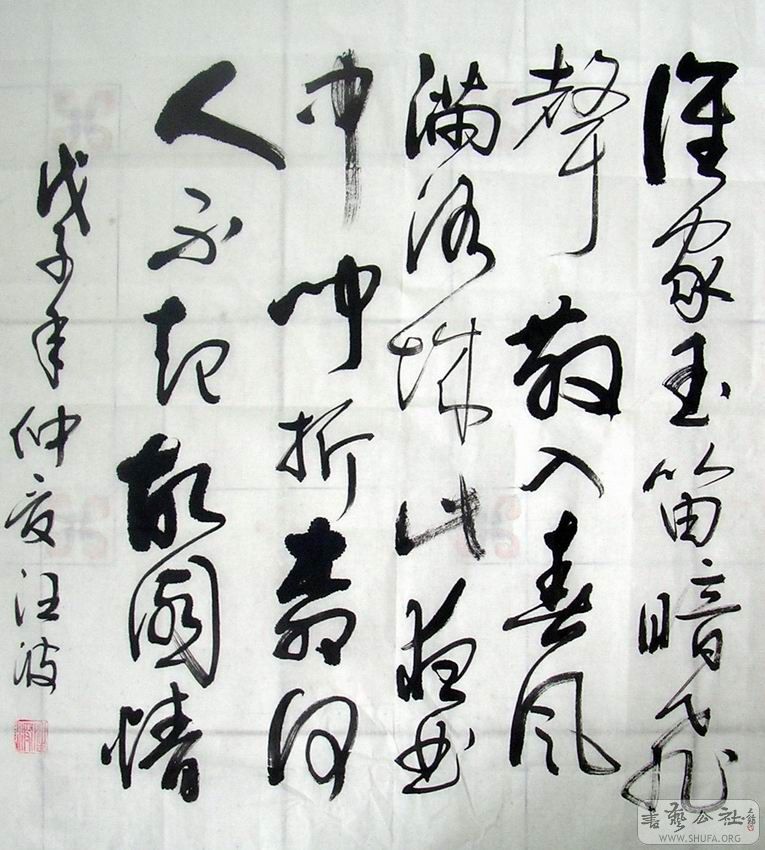 誰家玉笛暗飛
聲散入春風
滿洛城此夜曲
中聞折柳何
人不起故園情
戊子年仲夏汪波
書藝公社
WWW.SHUFA.ORG